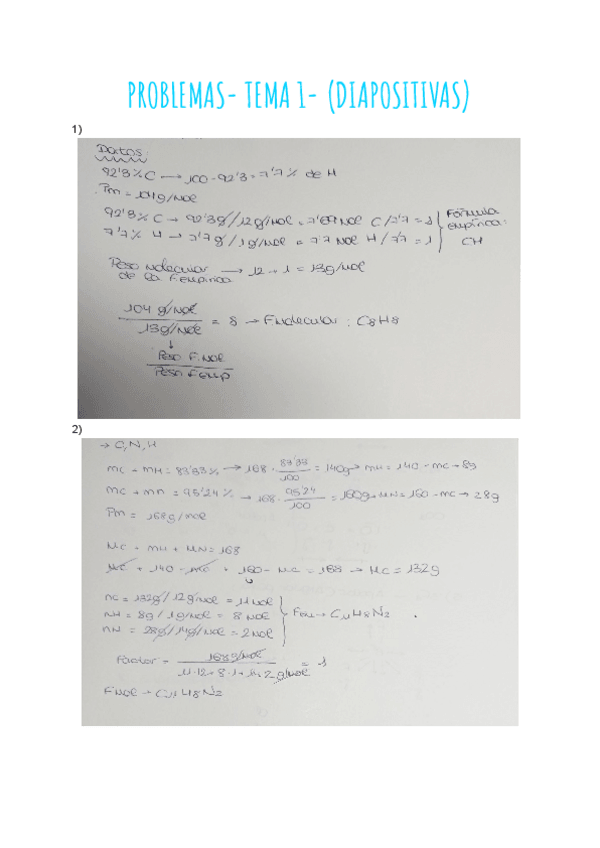 PROBLEMAS- TEMA 1- (DIAPOSITIVAS)
1)
Datos:
92'3% C → 100-92'3 = 7'7% de H
Pm = 104g/mol
92'3% C → 92'3g/12g/mol = 7'69mol C/7'7 = 1
7'7% H → 7'7g/1g/mol = 7'7 mol H/7'7 = 1
Fórmula
empírica:
CH
Peso molecular → 12 + 1 = 13g/mol
de la F.empírica
104 g/mol
13g/mol
= 8 → F.molecular : C8H8
↓
Peso F.mol
Peso F.emp
2)
→ C,N,H
mC + mH = 83'33% → 168 · 83'33/100 = 140g → mH = 140 - mC → 8g
mC + mN = 95'24% → 168 · 95'24/100 = 160g → mN = 160 - mC → 28g
Pm = 168g/mol
mC + mH + mN = 168
mC + 140 - mC + 160 - mC = 168 → mC = 132g
nC = 132g/12g/mol = 11mol
nH = 8g/1g/mol = 8 mol
nN = 28g/14g/mol = 2mol
Fem → C11H8N2
Factor = 168g/mol
11·12 + 8·1 + 14·2g/mol
= 1
Fmol → C11H8N2